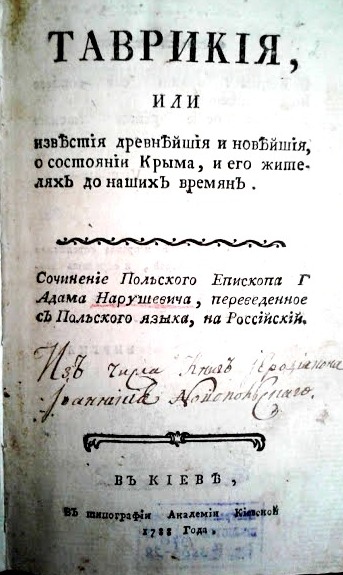 ТАВРИКІЯ,
ИЛИ
извѣстія древнѣйшія и новѣйшія,
о состояніи Крыма, и его жите-
ляхъ до нашихъ времянъ.
Сочиненіе Польскаго Епископа Г
Адама Нарушевича, переведенное
съ Польскаго языка, на Россійскій.
Изъ числа Книгъ
ВЪ КІЕВѢ,
Въ типографіи Академіи Кіевской
1788 Года,